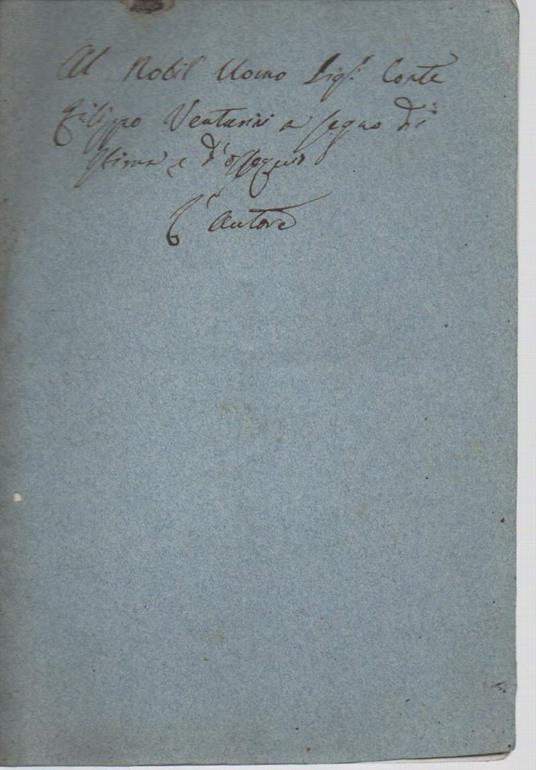 Al Nobil Uomo Sig.r Conte
Filippo Venturini a segno di
stima e d'ossequio
L'Autore